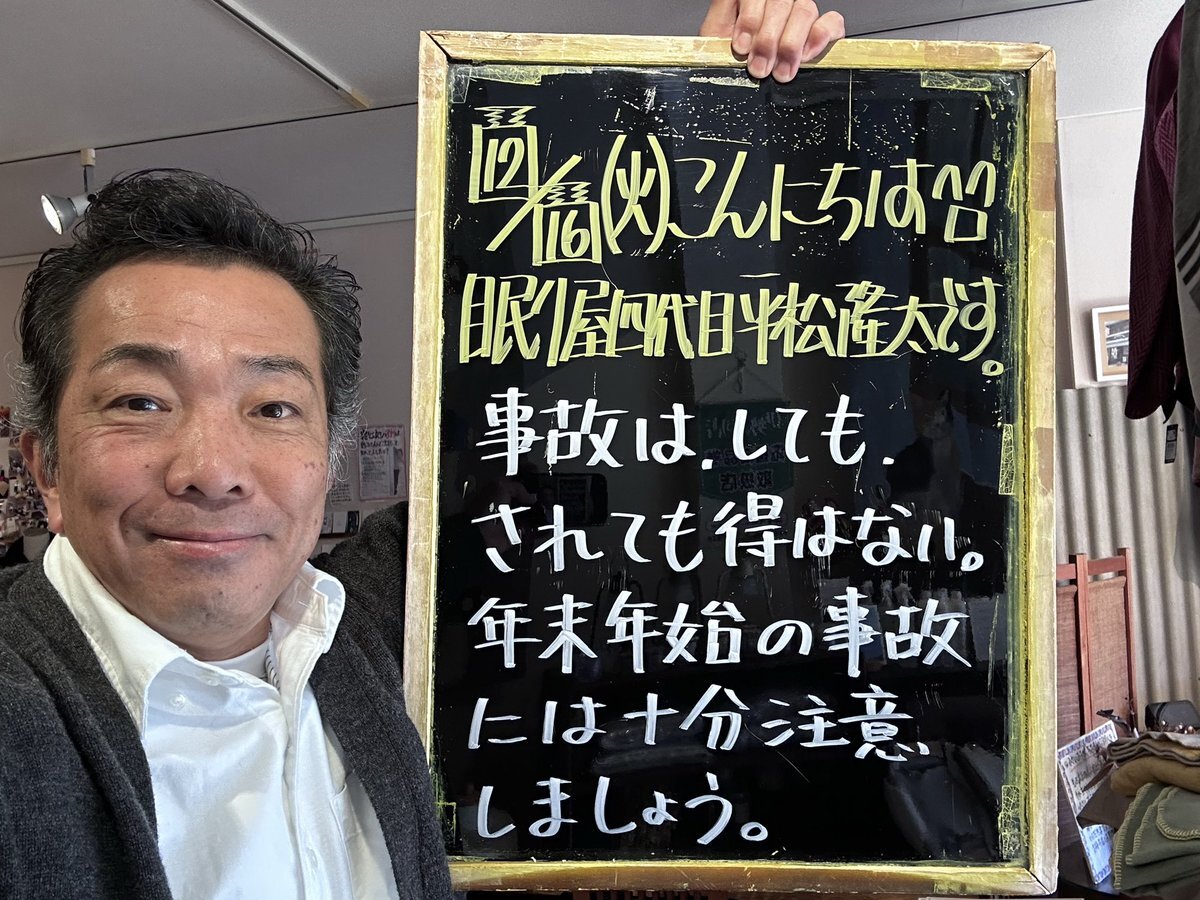 12/16(火)こんにちは^^
眠り屋四代目平松産太です。
事故は、しても、
されても得はない。
年末年始の事故
には十分注意
しましょう。
取扱店